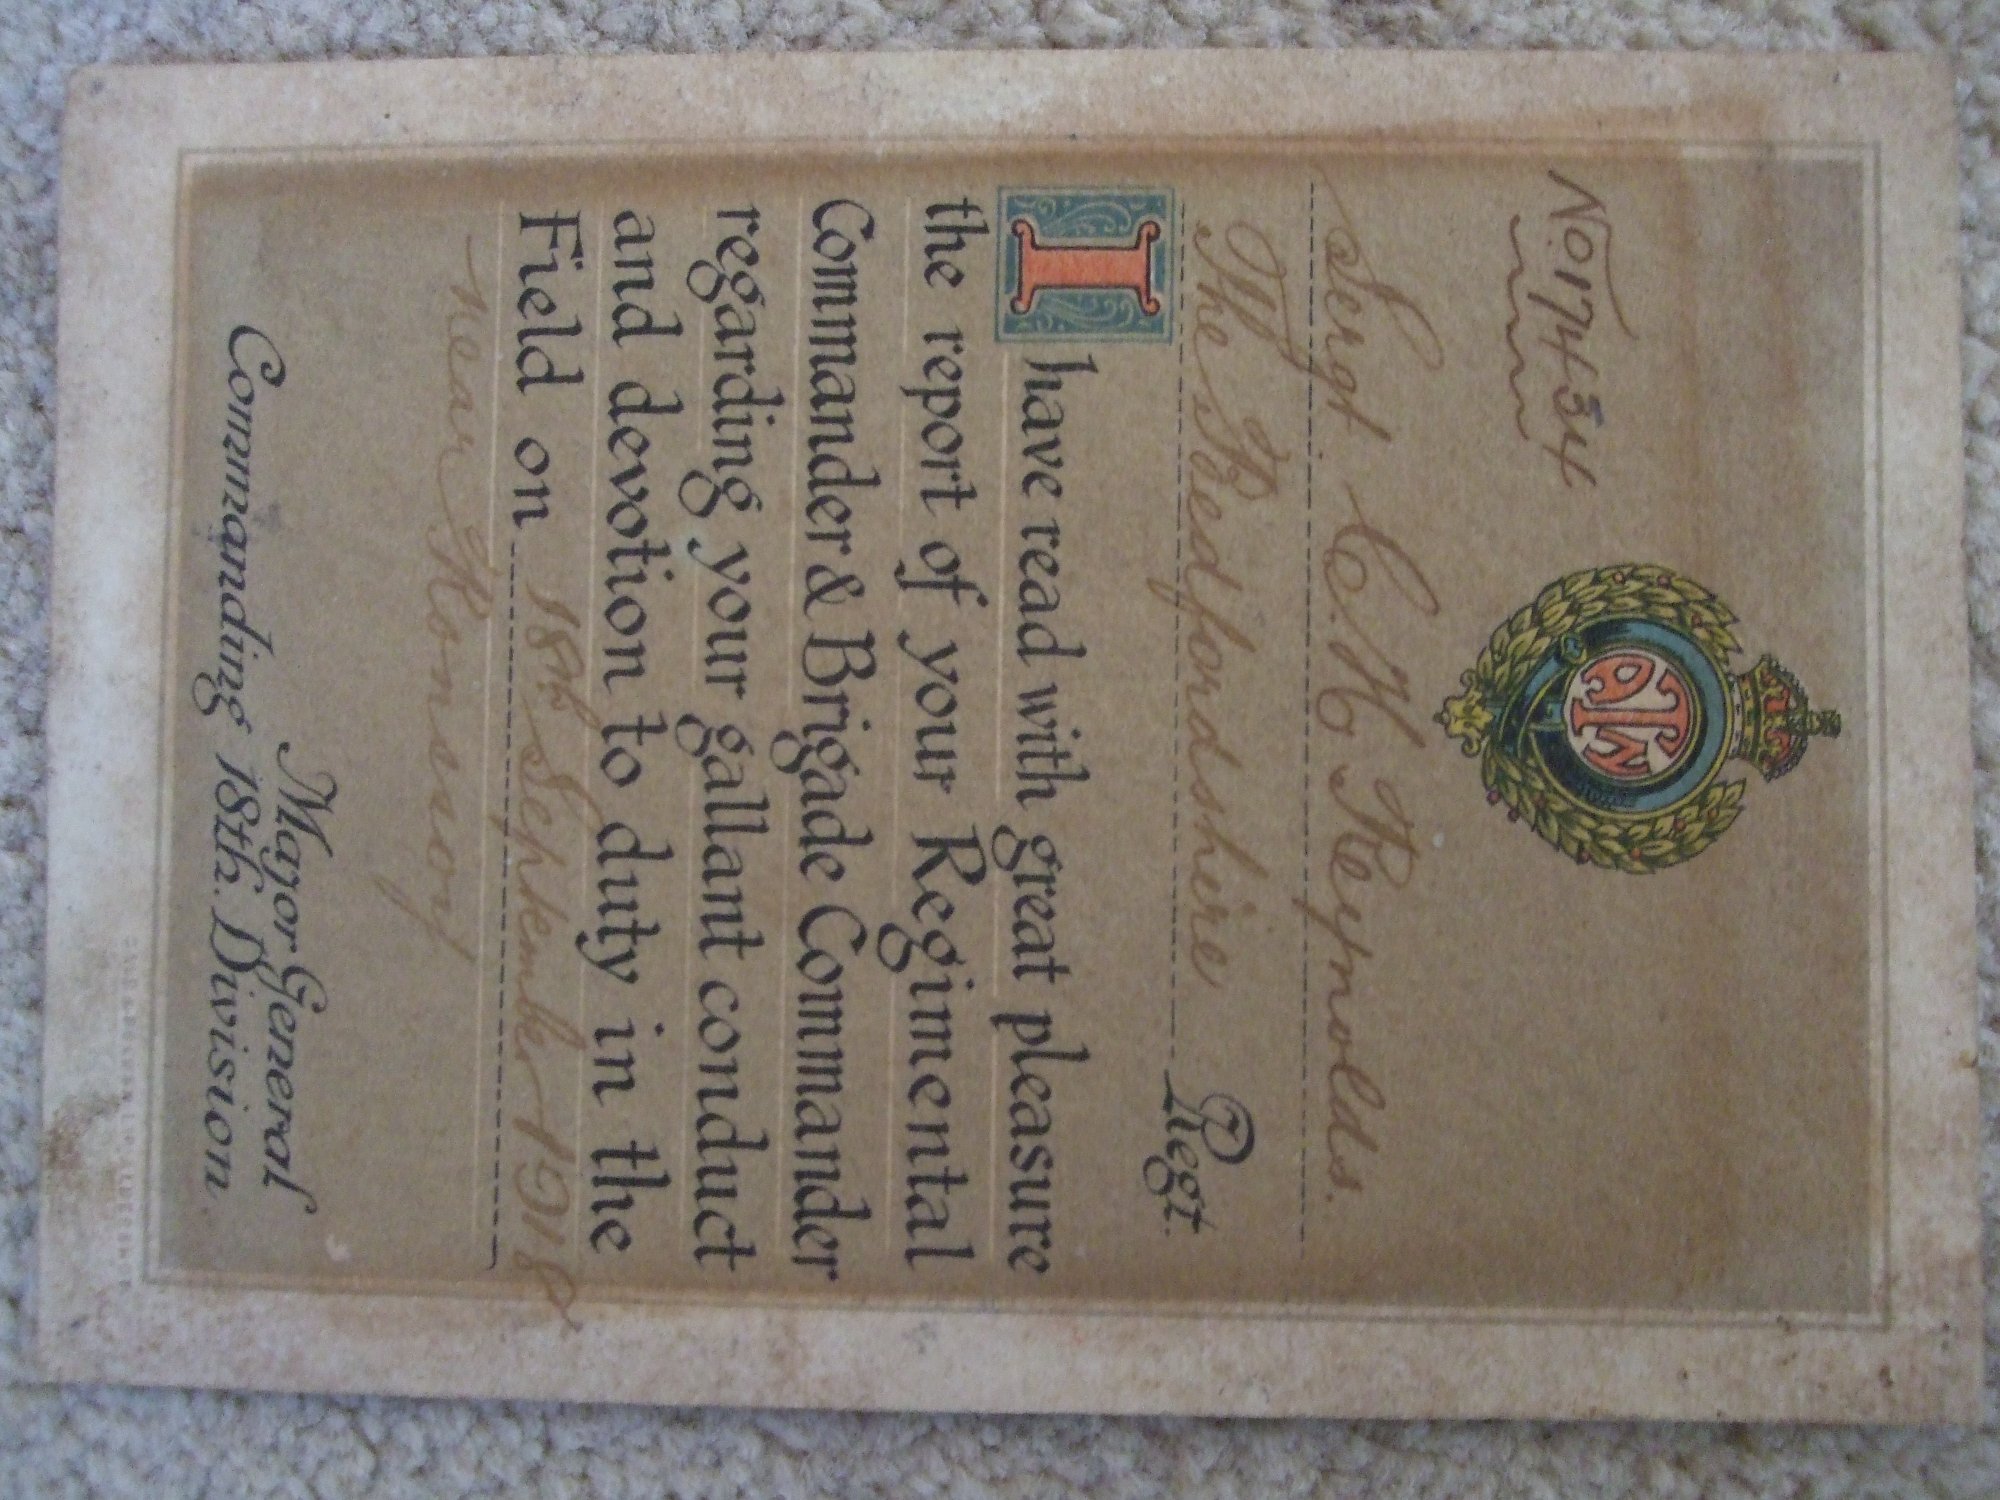 No 17434
Sergt. C. H. Reynolds.
The Bedfordshire Regt.
I have read with great pleasure
the report of your Regimental
Commander & Brigade Commander
regarding your gallant conduct
and devotion to duty in the
Field on 18th September 1918
near Ronssoy
Major General
Commanding 18th. Division.